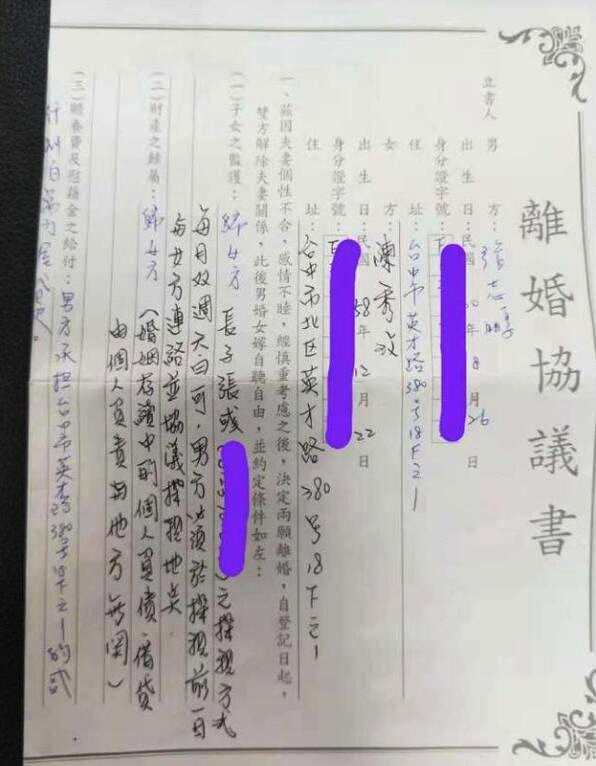 離婚協議書
立書人 男 方：張志
出 生 日：民國 年 8 月 26 日
身分證字號：
住 址：台中市英才路380号18F之1
女 方：陳秀
出 生 日：民國58年12月22日
身分證字號：
住 址：台中市北區英才路380号18F之1
一、茲因夫妻個性不合，感情不睦，經慎重考慮之後，決定兩願離婚，自登記日起，
雙方解除夫妻關係，此後男婚女嫁自聽自由，並約定條件如左：
(一)子女之監護：歸女方 長子張 之探視方式
每月双週天白可，男方必須於探視前一日
與女方連絡並協議探視地點
(二)財產之歸屬：歸女方（婚姻存續中的個人負債、借貸
由個人負責與他方無関）
(三)贍養費及慰藉金之給付：男方承担台中市英才路380号18F之1的